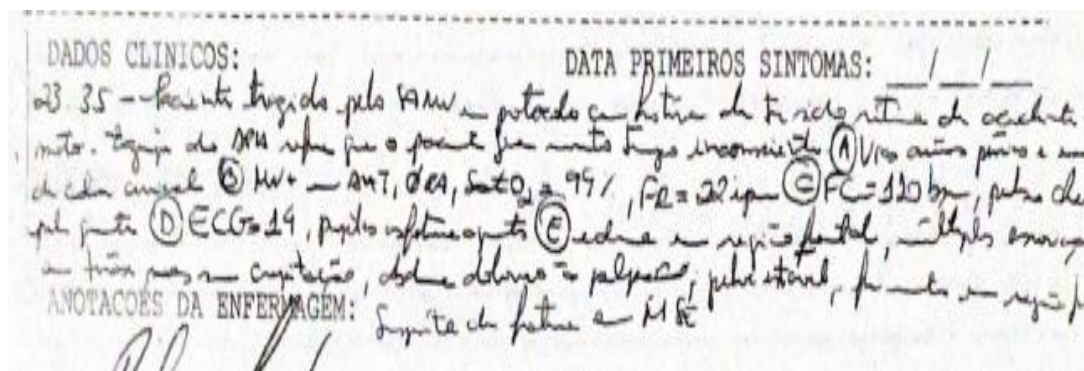 DADOS CLINICOS: DATA PRIMEIROS SINTOMAS: __/__/__
23:35 - Paciente trazido pelo SAMU em protocolo com história de ter sido vítima de acidente
moto. Equipe do APH refere que o paciente ficou muito tempo inconsciente (A) Vias aéreas pérvias e
de colar cervical (B) MV+ em AHT, S/RA, SatO2 = 99%, FR = 22 ipm (C) FC = 110 bpm, pulso
(D) ECG = 14, pupilas (E) edema em região frontal, múltiplas
em tórax mas sem crepitação, abdome doloroso à palpação, pelve estável, ferimento em região
ANOTACOES DA ENFERMAGEM: Suspeita de fratura em MSE